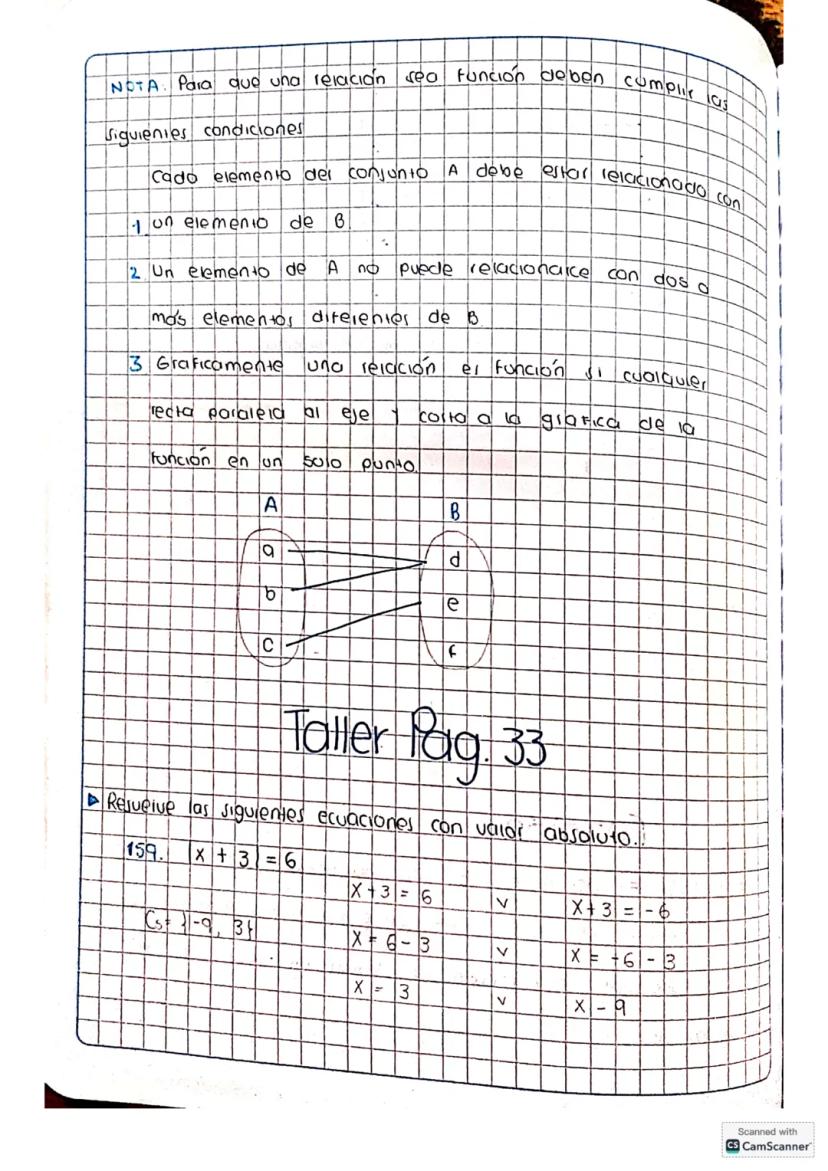 NOTA. Para que una relación sea función deben cumplir las
siguientes condiciones
Cada elemento del conjunto A debe estar relacionado con
1 un elemento de B
2 Un elemento de A no puede relacionarce con dos o
más elementos diferentes de B
3 Graficamente una relación es función si cualquier
recta paralela al eje y corta a la gráfica de la
función en un solo punto.
A B
a d
b e
c f
Taller Pag. 33
Resuelve las siguientes ecuaciones con valor absoluto.
159. |x + 3| = 6
x + 3 = 6 v x + 3 = -6
Cs = {-9, 3}
x = 6 - 3 v x = -6 - 3
x = 3 v x - 9
Scanned with
CS CamScanner